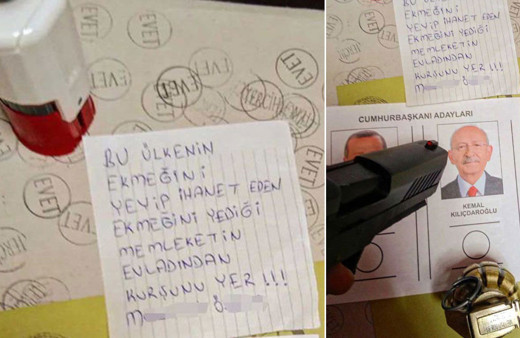 EVET
EVET
EVET
EVET
TERCİH
EVET
EVET
BU ÜLKENİN
EKMEĞİNİ
YEYİP İHANET EDEN
EKMEĞİNİ YEDİĞİ
MEMLEKETİN
EVLADINDAN
KURŞUNU YER !!!
BU ÜLKENİN
EKMEĞİNİ
YEYİP İHANET EDEN
EKMEĞİNİ YEDİĞİ
MEMLEKETİN
EVLADINDAN
KURŞUNU YER !!!
CUMHURBAŞKANI ADAYLARI
KEMAL
KILIÇDAROĞLU